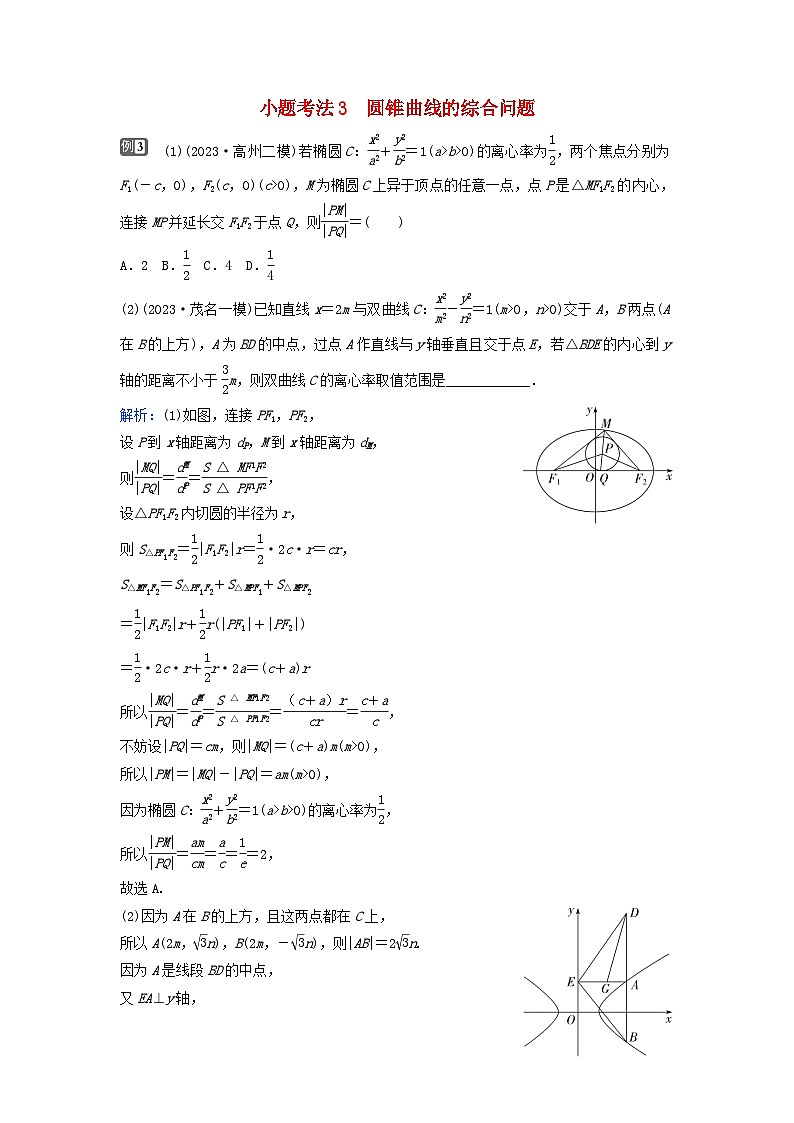 小题考法3 圆锥曲线的综合问题
例3 (1)(2023·高州二模)若椭圆C:x²/a²+y²/b²=1(a>b>0)的离心率为1/2,两个焦点分别为
F₁(-c,0),F₂(c,0)(c>0),M为椭圆C上异于顶点的任意一点,点P是△MF₁F₂的内心,
连接MP并延长交F₁F₂于点Q,则|PM|/|PQ|=( )
A.2 B.1/2 C.4 D.1/4
(2)(2023·茂名一模)已知直线x=2m与双曲线C:x²/m²-y²/n²=1(m>0,n>0)交于A,B两点(A
在B的上方),A为BD的中点,过点A作直线与y轴垂直且交于点E,若△BDE的内心到y
轴的距离不小于3/2m,则双曲线C的离心率取值范围是____________.
解析:(1)如图,连接PF₁,PF₂,
设P到x轴距离为d_P,M到x轴距离为d_M,
则|MQ|/|PQ|=d_M/d_P=S△MF₁F₂/S△PF₁F₂,
设△PF₁F₂内切圆的半径为r,
则S△PF₁F₂=1/2|F₁F₂|r=1/2·2c·r=cr,
S△MF₁F₂=S△PF₁F₂+S△MPF₁+S△MPF₂
=1/2|F₁F₂|r+1/2r(|PF₁|+|PF₂|)
=1/2·2c·r+1/2r·2a=(c+a)r
所以|MQ|/|PQ|=d_M/d_P=S△MF₁F₂/S△PF₁F₂=(c+a)r/cr=c+a/c,
不妨设|PQ|=cm,则|MQ|=(c+a)m(m>0),
所以|PM|=|MQ|-|PQ|=am(m>0),
因为椭圆C:x²/a²+y²/b²=1(a>b>0)的离心率为1/2,
所以|PM|/|PQ|=am/cm=a/c=1/e=2,
故选A.
y
M
P
F₁ O Q F₂ x
(2)因为A在B的上方,且这两点都在C上,
所以A(2m,√3n),B(2m,-√3n),则|AB|=2√3n.
因为A是线段BD的中点,
又EA⊥y轴,
y
D
E G A
O x
B